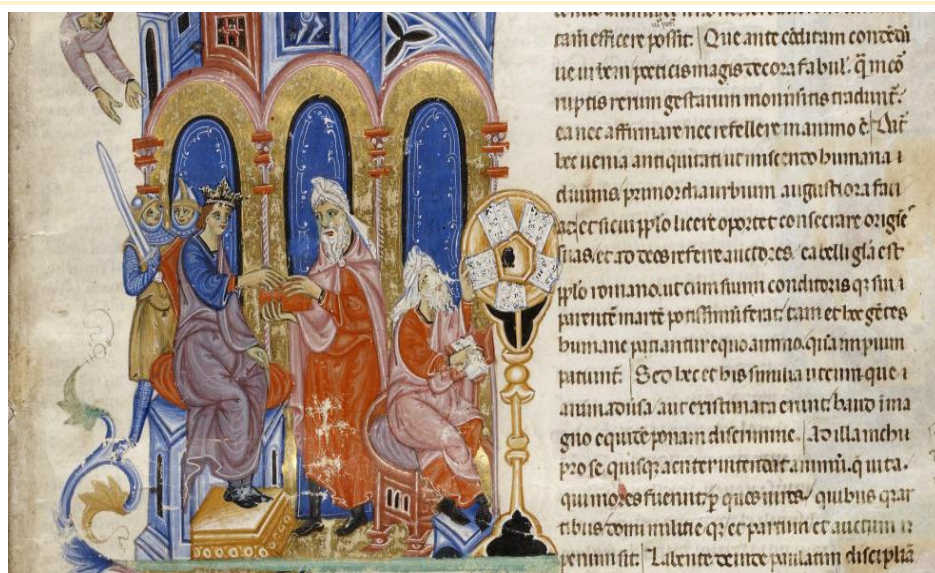 cam efficere possit: Que ante cōditam condēdā
ue urbem poeticis magis decora fabul. q̄ in cō
ruptis rerum gestarum monumtis tradunt.
ea nec affirmare nec refellere in animo ē. Dat̄
hec uenia antiquitati ut miscendo humana i
diuinis primordia urbium augustiora faci
at: et si cui pplo licere oportet consecrare origīe
suas, et ad deos referre auctores, ea belli gl̄a est
pplo romano. ut cum suum conditoris q; sui i
parentē martē potissimū ferat: tam et hec gētes
humane patiantur equo animo. quā impium
patiunt. Sed hec et his similia utcumque i
animaduisa / aut existimata erunt: haud i ma
gno equidē ponam discrimine. Ad illa michi
pro se quisq; acriter intendat animū. q uita.
qui mores fuerint p quos uiros / quibus q; ar
tibus domi militie q; et partum et auctum i
perium sit. Labente deinde paulatim disciplīa